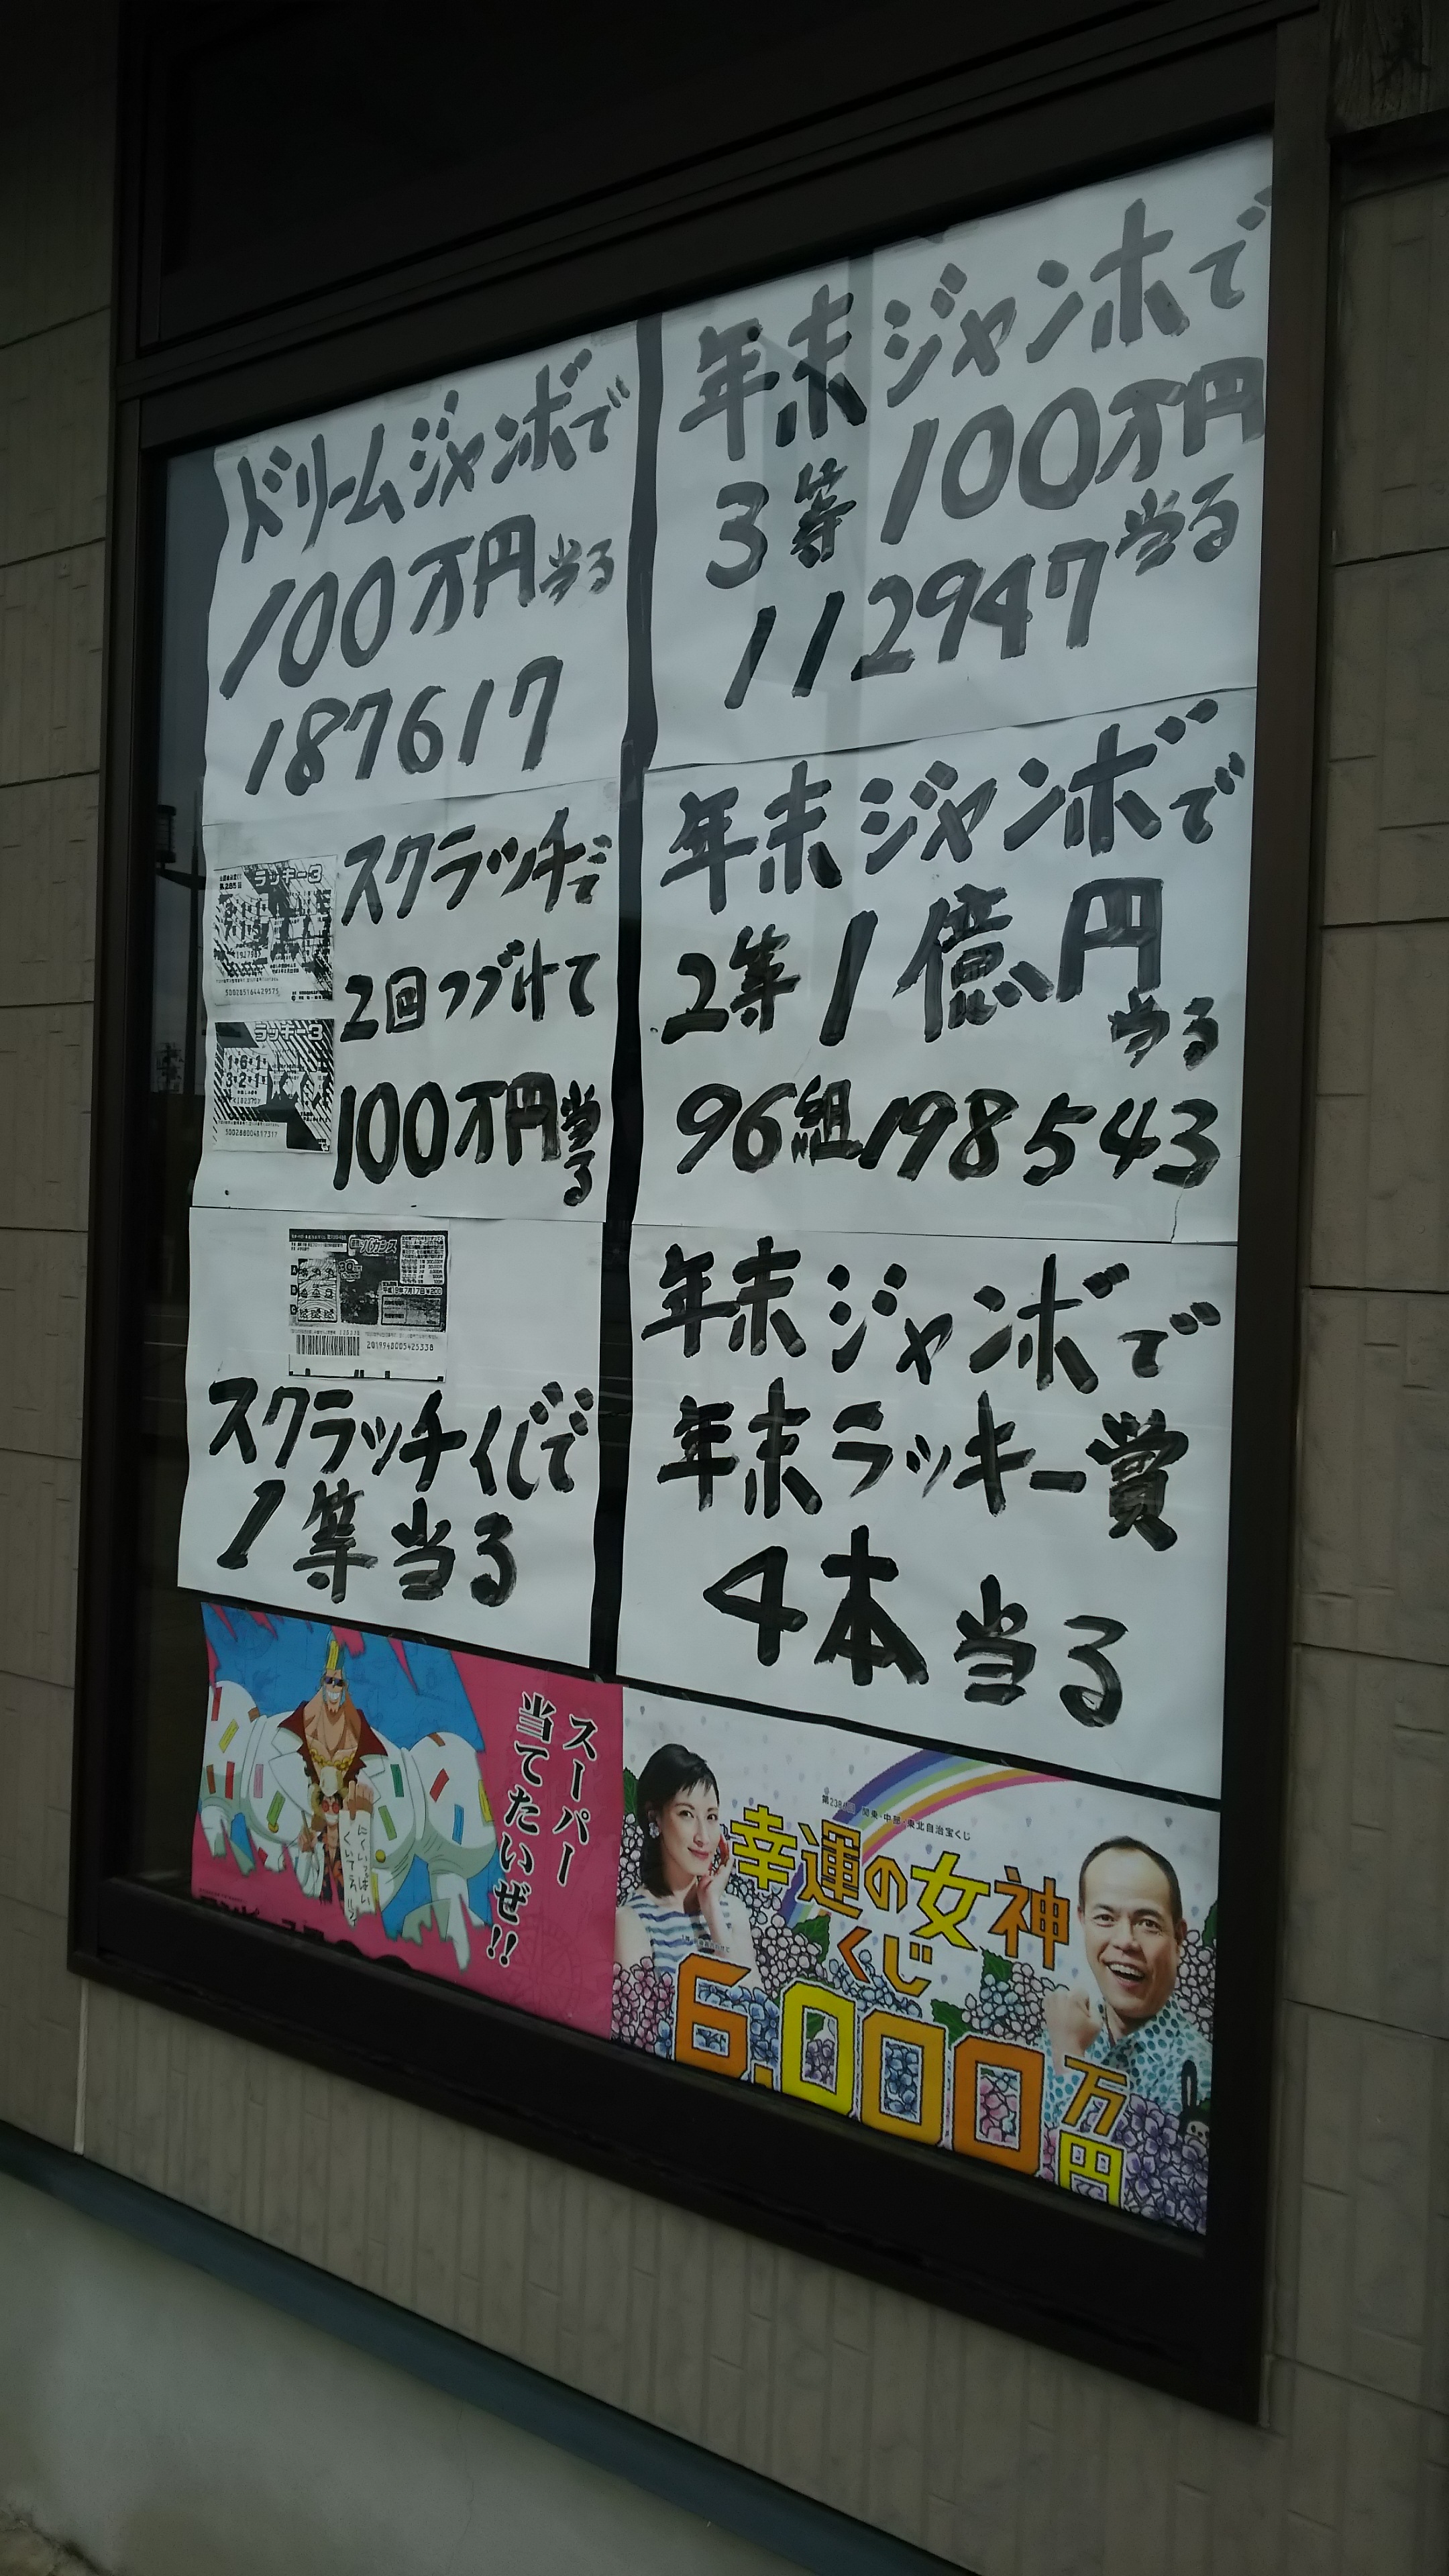 ドリームジャンボで
100万円当る
187617
スクラッチで
2回つづけて
100万円当る
ラッキー3
500285164429575
ラッキー3
500288004817317
2019948005425338
スクラッチくじで
1等当る
スーパー
当てたいぜ!!
年末ジャンボで
3等100万円
当る
112947
年末ジャンボで
2等1億円
当る
96組198543
年末ジャンボで
年末ラッキー賞
4本当る
関東・中部・東北自治宝くじ
幸運の女神
くじ
6,000万円